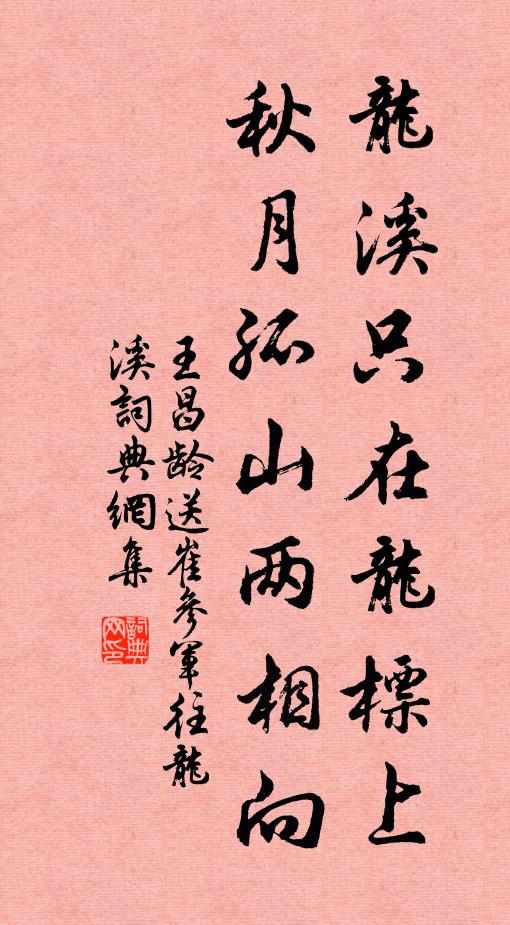 龍溪只在龍標上
秋月孤山两相向
王昌龄送崔參軍往龍
溪詞典網集
詞典
网印